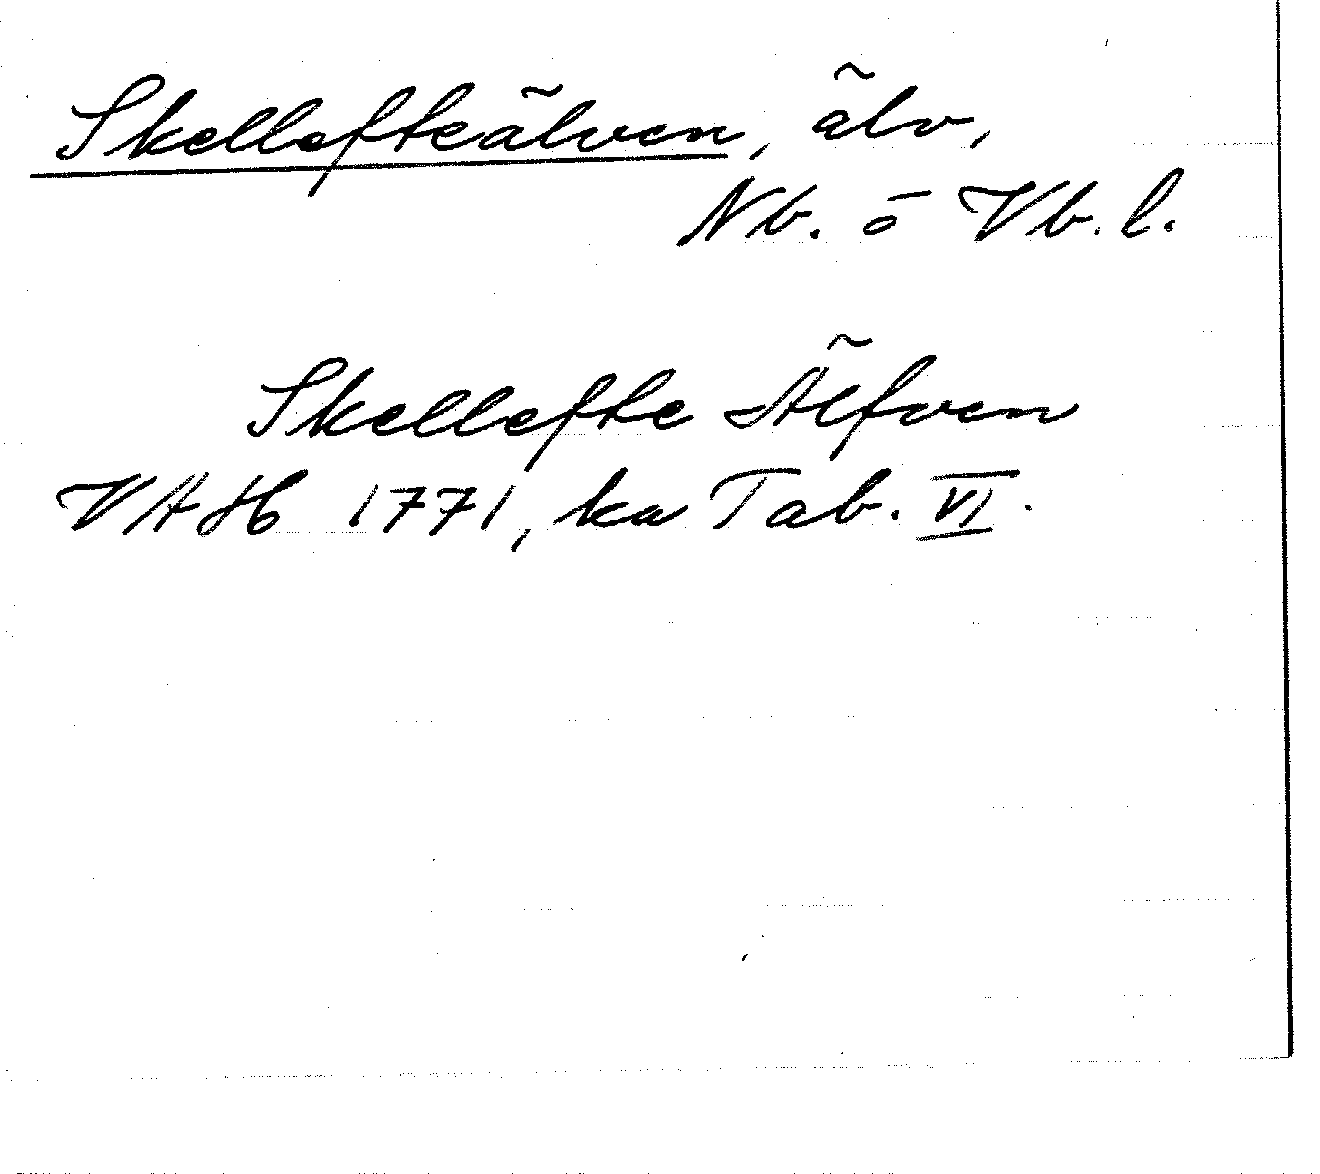 Skellefteälven, älv,
Nb. o Vb. l.
Skellefte Älfven
VAH 1771, ka Tab. VI.